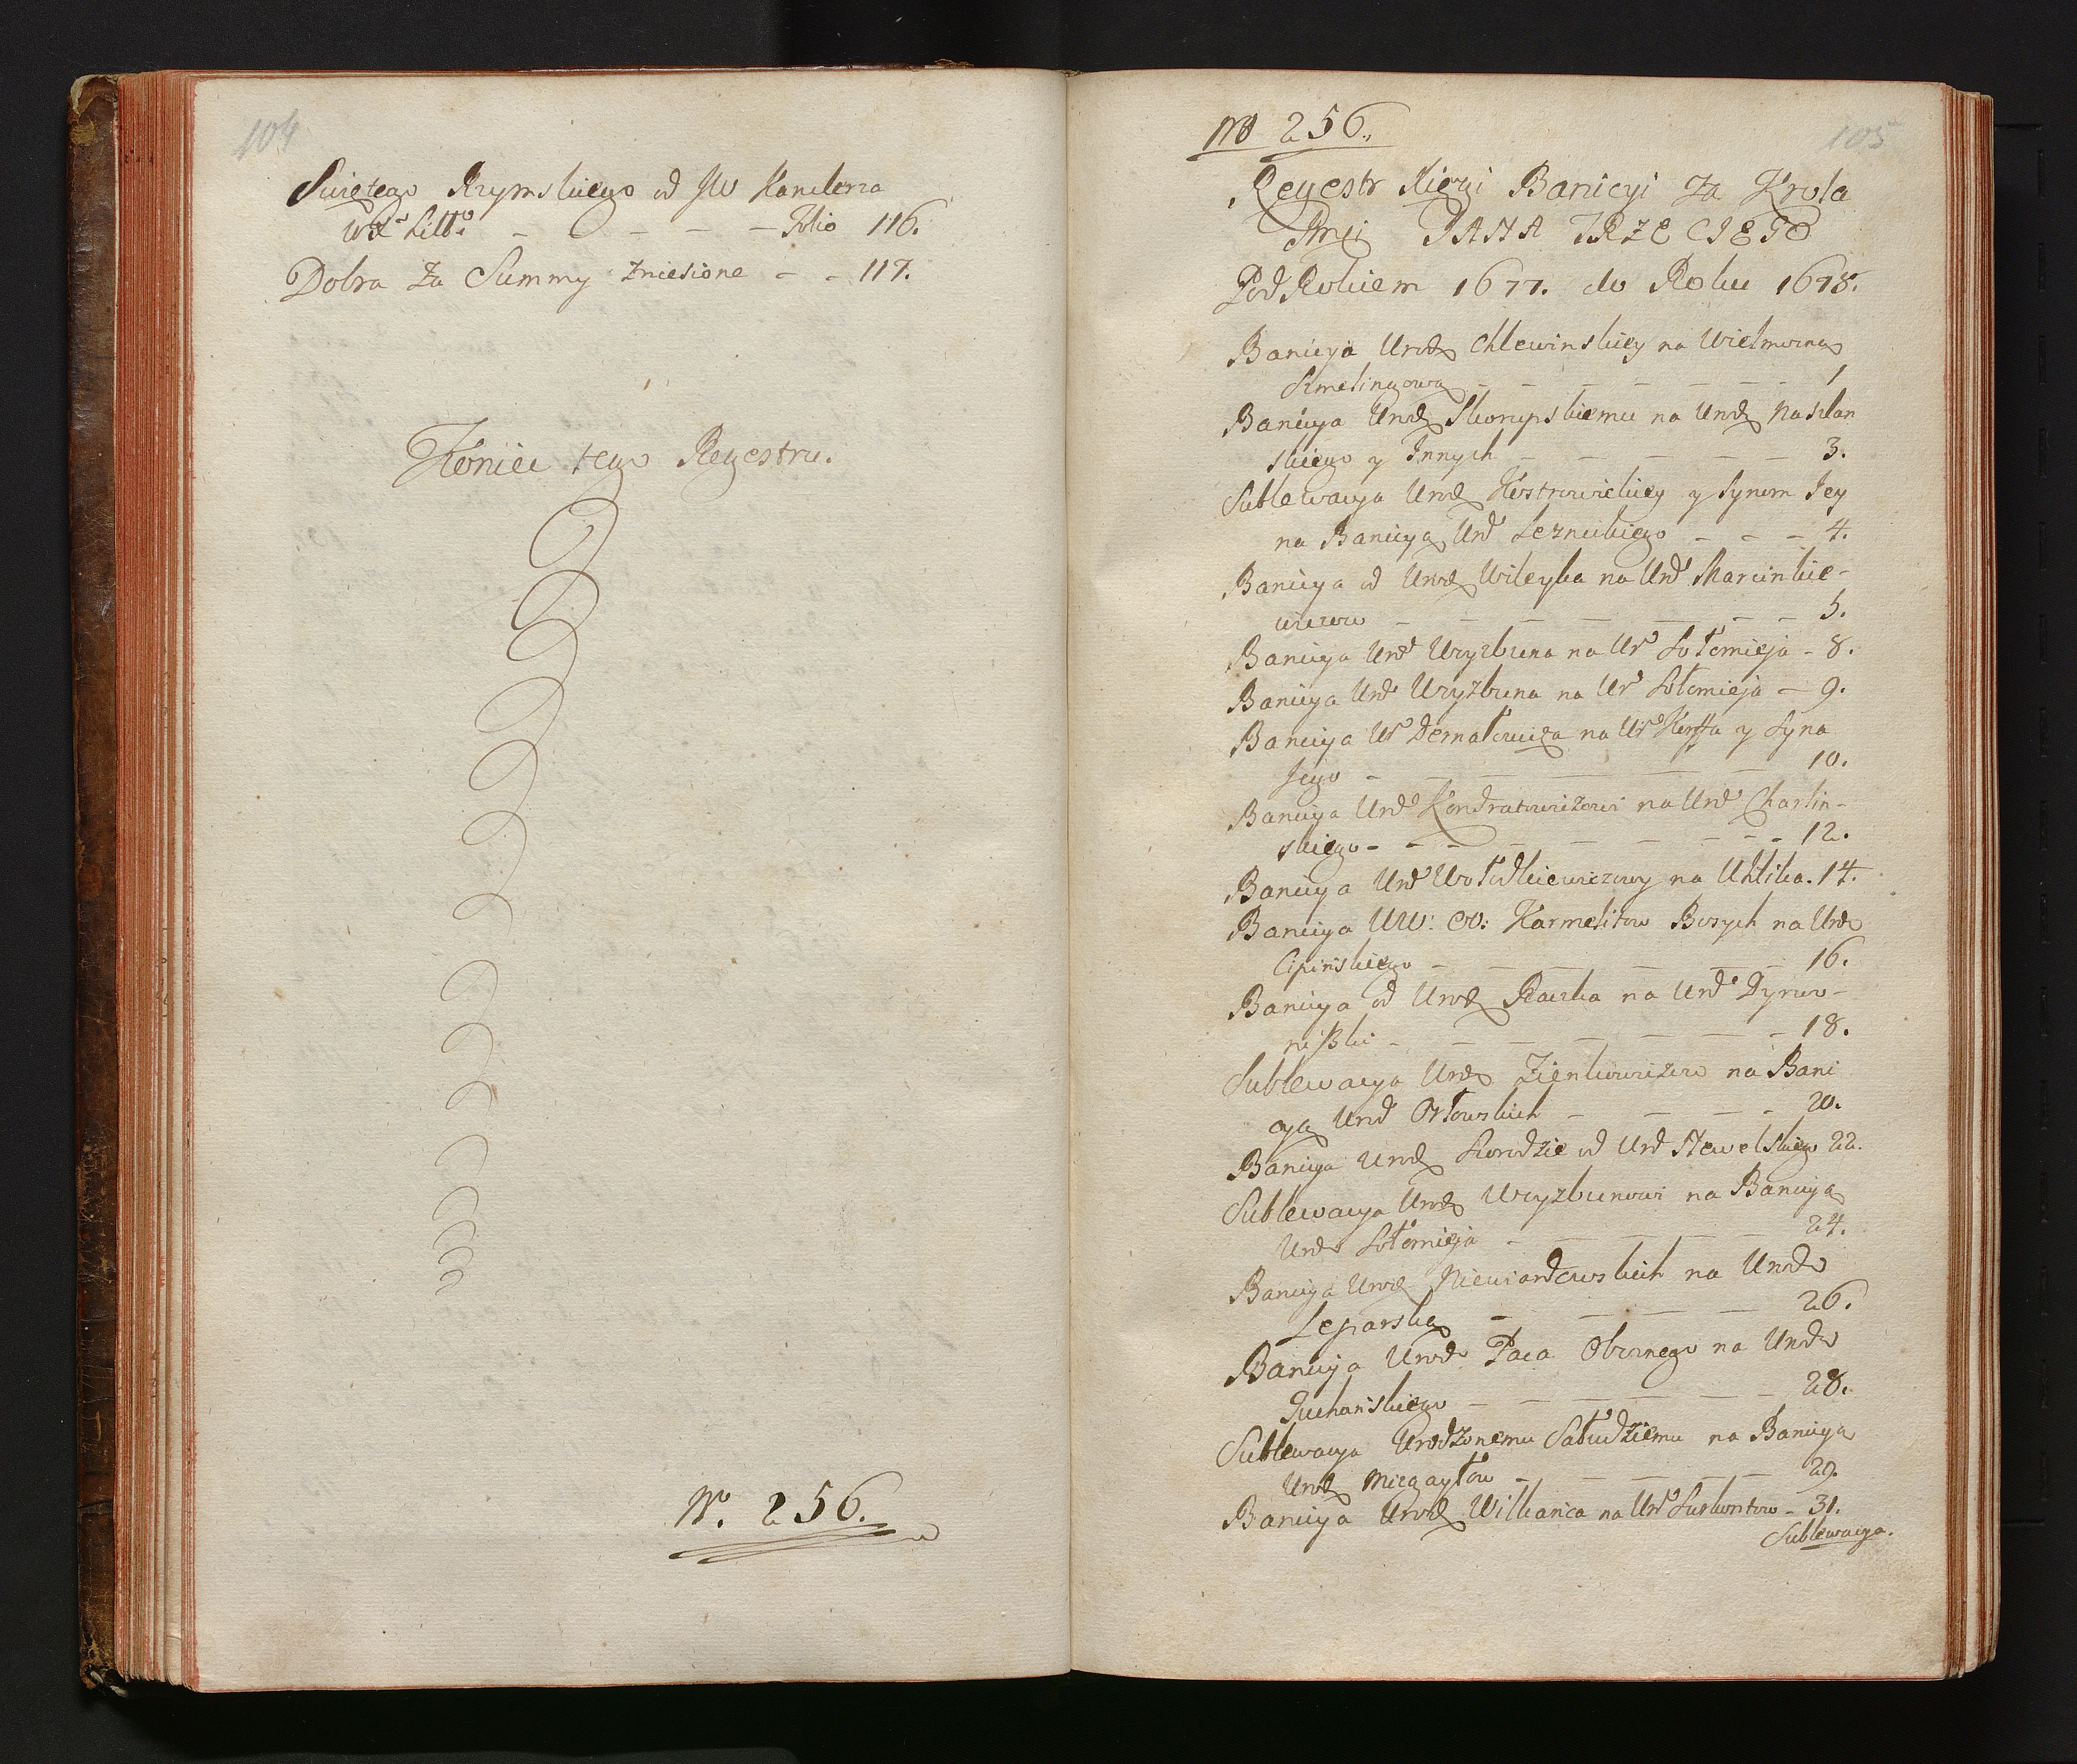 104
Swiętego Rzymskiego od JW Kanclerza
WXL Litt: - - - - - Folio 116.
Dobra za Summy zniesione - - 117.
Koniec tego Regestru.
N. 256.
105
No 256.
Regestr Xięgi Banicyi za Krola
Jmci JANA TRZECIEGO
Pod Rokiem 1677. do Roku 1678.
Banicya Urodz Chlewinskiey na Wielmozną
Szmelingową - - - - - - - 1
Banicya Urodz Skorupskiemu na Urodz Naszlan
skiego y Innych - - - - - - 3.
Sublewacya Urodz Kostrowickiey y Synom Jey
na Banicyą Urd Leznickiego - - - 4.
Banicya od Urodz Wileyka na Urd Marcinkie-
wiczow - - - - - - - - 5.
Banicya Urd Wyzbuna na Ur Sołomieja - 8.
Banicya Urd Wyzbuna na Ur Sołomieja - 9.
Banicya Ur Dernałowicza na Ur Korffa y Syna
Jego - - - - - - - 10.
Banicya Urd Kondratowiczowi na Urd Charlin-
skiego - - - - - - - - 12.
Banicya Urd Wołodkiewiczowey na Uklika. 14.
Banicya WW: OO: Karmelitow Bosych na Urd
Cipinskiego - - - - - - 16.
Banicya od Urodz Raczka na Urd Dyrwo-
niszki - - - - - - - 18.
Sublewacya Urodz Zienkowiczow na Bani
cyą Urd Orłowskich - - - - 20.
Banicya Urodz Skorodzie od Urd Newelskiego 22.
Sublewacya Urodz Wyzbunowi na Banicyą
Urd Sołomieja - - - - - 24.
Banicya Urodz Niewiardowskich na Urod
Leparską - - - - - 26.
Banicya Urod Paca Oboznego na Urod
Puchanskiego - - - - - - - 28.
Sublewacya Urodzonemu Sałudziemu na Banicyą
Urodz Micgayłow - - - - - 29.
Banicya Urodz Wilkanca na Urd Surkontow - 31.
Sublewacya.